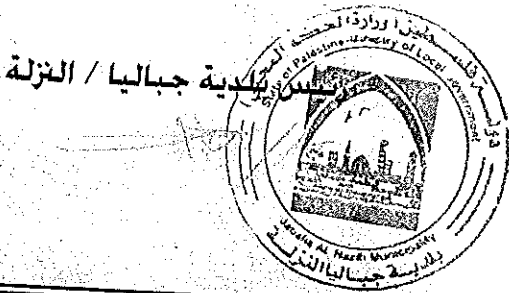 رئيس بلدية جباليا / النزلة
دولة فلسطين / وزارة الحكم المحلي
State of Palestine - Ministry of Local Government
Jabalia AL Nazla Municipality
بلدية جباليا النزلة